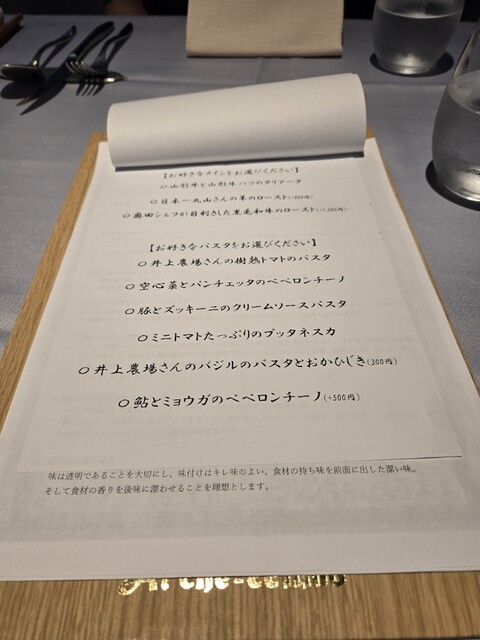 【お好きなメインをお選びください】
○ 山形牛と山形牛ハツのタリアータ
○ 日本一丸山さんの羊のロースト
○ 奥田シェフが目利きした黒毛和牛のロースト
【お好きなパスタをお選びください】
○ 井上農場さんの樹熟トマトのパスタ
○ 空心菜とパンチェッタのペペロンチーノ
○ 豚とズッキーニのクリームソースパスタ
○ ミニトマトたっぷりのプッタネスカ
○ 井上農場さんのバジルのパスタとおかひじき(300円)
○ 鮎とミョウガのペペロンチーノ(+500円)
味は透明であることを大切にし、味付けはキレ味のよい、食材の持ち味を前面に出した潔い味。
そして食材の香りを後味に漂わせることを理想とします。